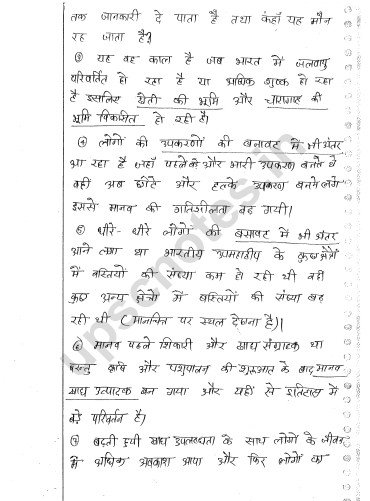 तक जानकारी दे पाता है तथा कहाँ यह मौन
रह जाता है?
③ यह वह काल है जब भारत में जलवायु
परिवर्तित हो रहा है या अधिक शुष्क हो रहा
है इसलिए खेती की भूमि और चारागाह की
भूमि विकसित हो रही है।
④ लोगों की उपकरणों की बनावट में भी अंतर
आ रहा है जहाँ पहले के और भारी उपकरण बनते थे
वहीं अब छोटे और हल्के उपकरण बनने लगे
इससे मानव की गतिशीलता बढ़ गयी।
⑤ धीरे- धीरे लोगों की बसावट में भी अंतर
आने लगा था भारतीय उपमहाद्वीप के कुछ क्षेत्रों
में बस्तियों की संख्या कम हो रही थी वहीं
कुछ अन्य क्षेत्रों में बस्तियों की संख्या बढ़
रही थी (मानचित्र पर स्थल देखना है)।
⑥ मानव पहले शिकारी और खाद्य संग्राहक था
परन्तु कृषि और पशुपालन की शुरुआत के बाद मानव
खाद्य उत्पादक बन गया और यहीं से इतिहास में
बड़े परिवर्तन है।
⑦ बढ़ती हुयी खाद्य उपलब्धता के साथ लोगों के जीवन
में अधिक अवकाश आया और फिर लोगों का
upscnotes.in